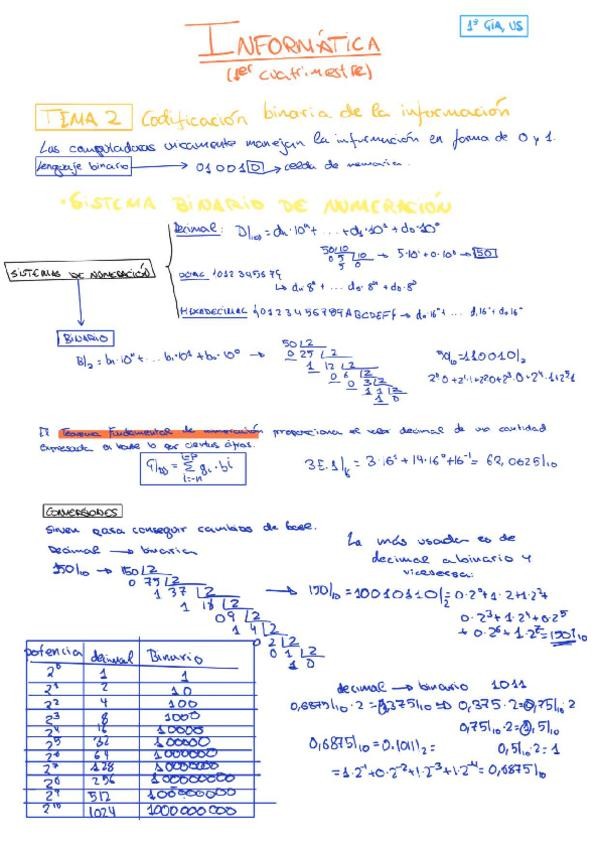 1º GIA, US
INFORMÁTICA
(1er cuatrimestre)
TEMA 2 Codificación binaria de la información
Las computadoras únicamente manejan la información en forma de 0 y 1.
Lenguaje binario → 01001 0 → celda de memoria.
• SISTEMA BINARIO DE NUMERACIÓN
Decimal: D|(10 = dn·10ⁿ + ... + d1·10¹ + d0·10⁰
50/10
0 5 /10
5 0
→ 5·10¹ + 0·10⁰ → 50
SISTEMAS DE NUMERACIÓN
→ dn·8ⁿ + ... d0·8ⁿ + d0·8⁰
HEXADECIMAL
BINARIO
B|2 = bn·10ⁿ + ... b1·10¹ + b0·10⁰ →
50 |2
0 25 |2
1 12 |2
0 6 |2
0 3 |2
1 1 |2
1 0
50|10 = 110010|2
El Teorema Fundamental de numeración proporciona el valor decimal de una cantidad
expresada en base b por ciertos
3E.1|16 = 3·16¹ + 14·16⁰ + 16⁻¹ = 62,0625|10
CONVERSIONES
Sirven para conseguir cambios de base.
Decimal → binario
La más usada es de
decimal a binario y
viceversa:
150|10 → 150 |2
0 75 |2
1 37 |2
1 18 |2
0 9 |2
1 4 |2
0 2 |2
0 1 |2
1 0
→ 150|10 = 10010110|2 = 0·2⁰ + 1·2 + 1·2² +
0·2³ + 1·2⁴ + 0·2⁵
+ 0·2⁶ + 1·2⁷ = 150|10
potencia decimal Binario
2⁰ 1 1
2¹ 2 10
2² 4 100
2³ 8 1000
2⁴ 16 10000
2⁵ 32 100000
2⁶ 64 1000000
2⁷ 128 10000000
2⁸ 256 100000000
2⁹ 512
2¹⁰ 1024
decimal → binario 1011
0,6875|10 · 2 = 1,375|10 ⇒ 0,375·2 = 0,75|10·2
0,75|10·2 = 1,5|10
0,6875|10 = 0.1011|2 =
0,5|10·2 = 1
= 1·2⁻¹ + 0·2⁻² + 1·2⁻³ + 1·2⁻⁴ = 0,6875|10